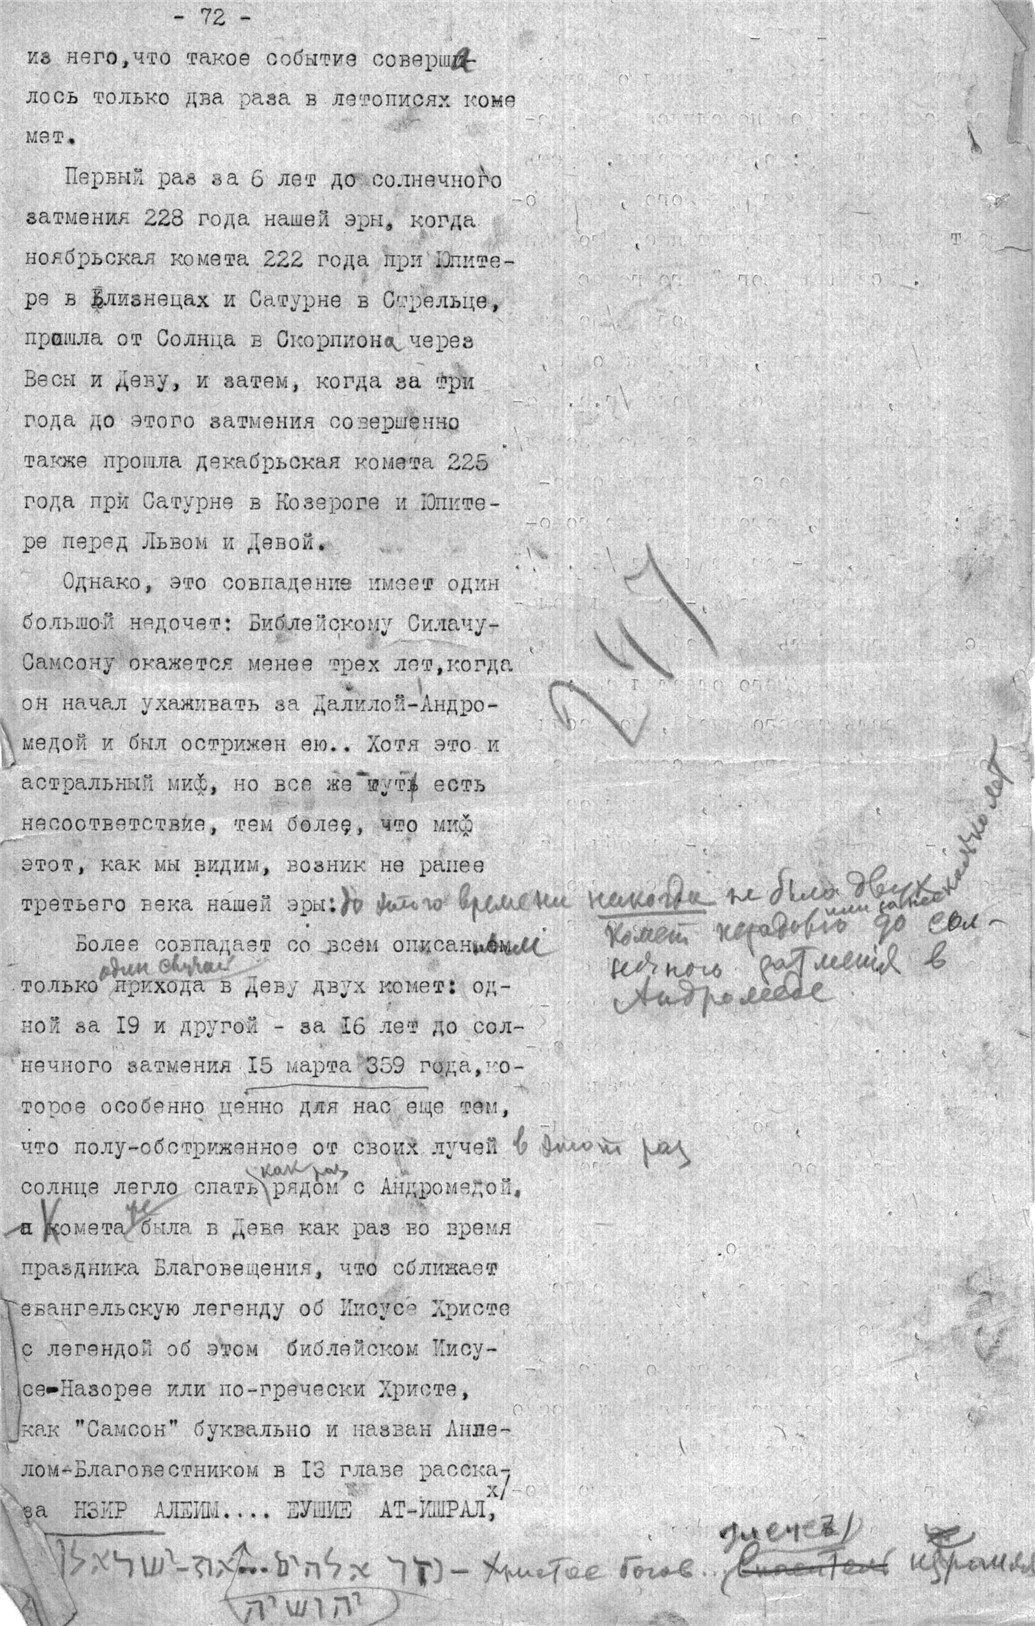 - 72 -
из него,что такое событие соверши-
лось только два раза в летописях коме
мет.
Первый раз за 6 лет до солнечного
затмения 228 года нашей эры, когда
ноябрьская комета 222 года при Юпите-
ре в Близнецах и Сатурне в Стрельце,
прошла от Солнца в Скорпионе через
Весы и Деву, и затем, когда за три
года до этого затмения совершенно
также прошла декабрьская комета 225
года при Сатурне в Козероге и Юпите-
ре перед Львом и Девой.
Однако, это совпадение имеет один
большой недочет: Библейскому Силачу-
Самсону окажется менее трех лет,когда
он начал ухаживать за Далилой-Андро-
медой и был острижен ею.. Хотя это и
астральный миф, но все же тут есть
несоответствие, тем более, что миф
этот, как мы видим, возник не ранее
третьего века нашей эры: до этого времени никогда не было двух
комет незадолго до сол-
нечного затмения в
Андромеде
247
Более совпадает со всем описанным
один случай
только прихода в Деву двух комет: од-
ной за 19 и другой - за 16 лет до сол-
нечного затмения 15 марта 359 года,ко-
торое особенно ценно для нас еще тем,
что полу-обстриженное от своих лучей в этот раз
как раз
солнце легло спать рядом с Андромедой,
а комета же была в Деве как раз во время
праздника Благовещения, что сближает
евангельскую легенду об Иисусе Христе
с легендой об этом библейском Иису-
се-Назорее или по-гречески Христе,
как "Самсон" буквально и назван Анге-
лом-Благовестником в 13 главе расска-
за НЗИР АЛЕИМ.... ЕУШИЕ АТ-ИШРАЛ, х/
נזר אלהים...את-ישראל - Христос богов...
יהושיה